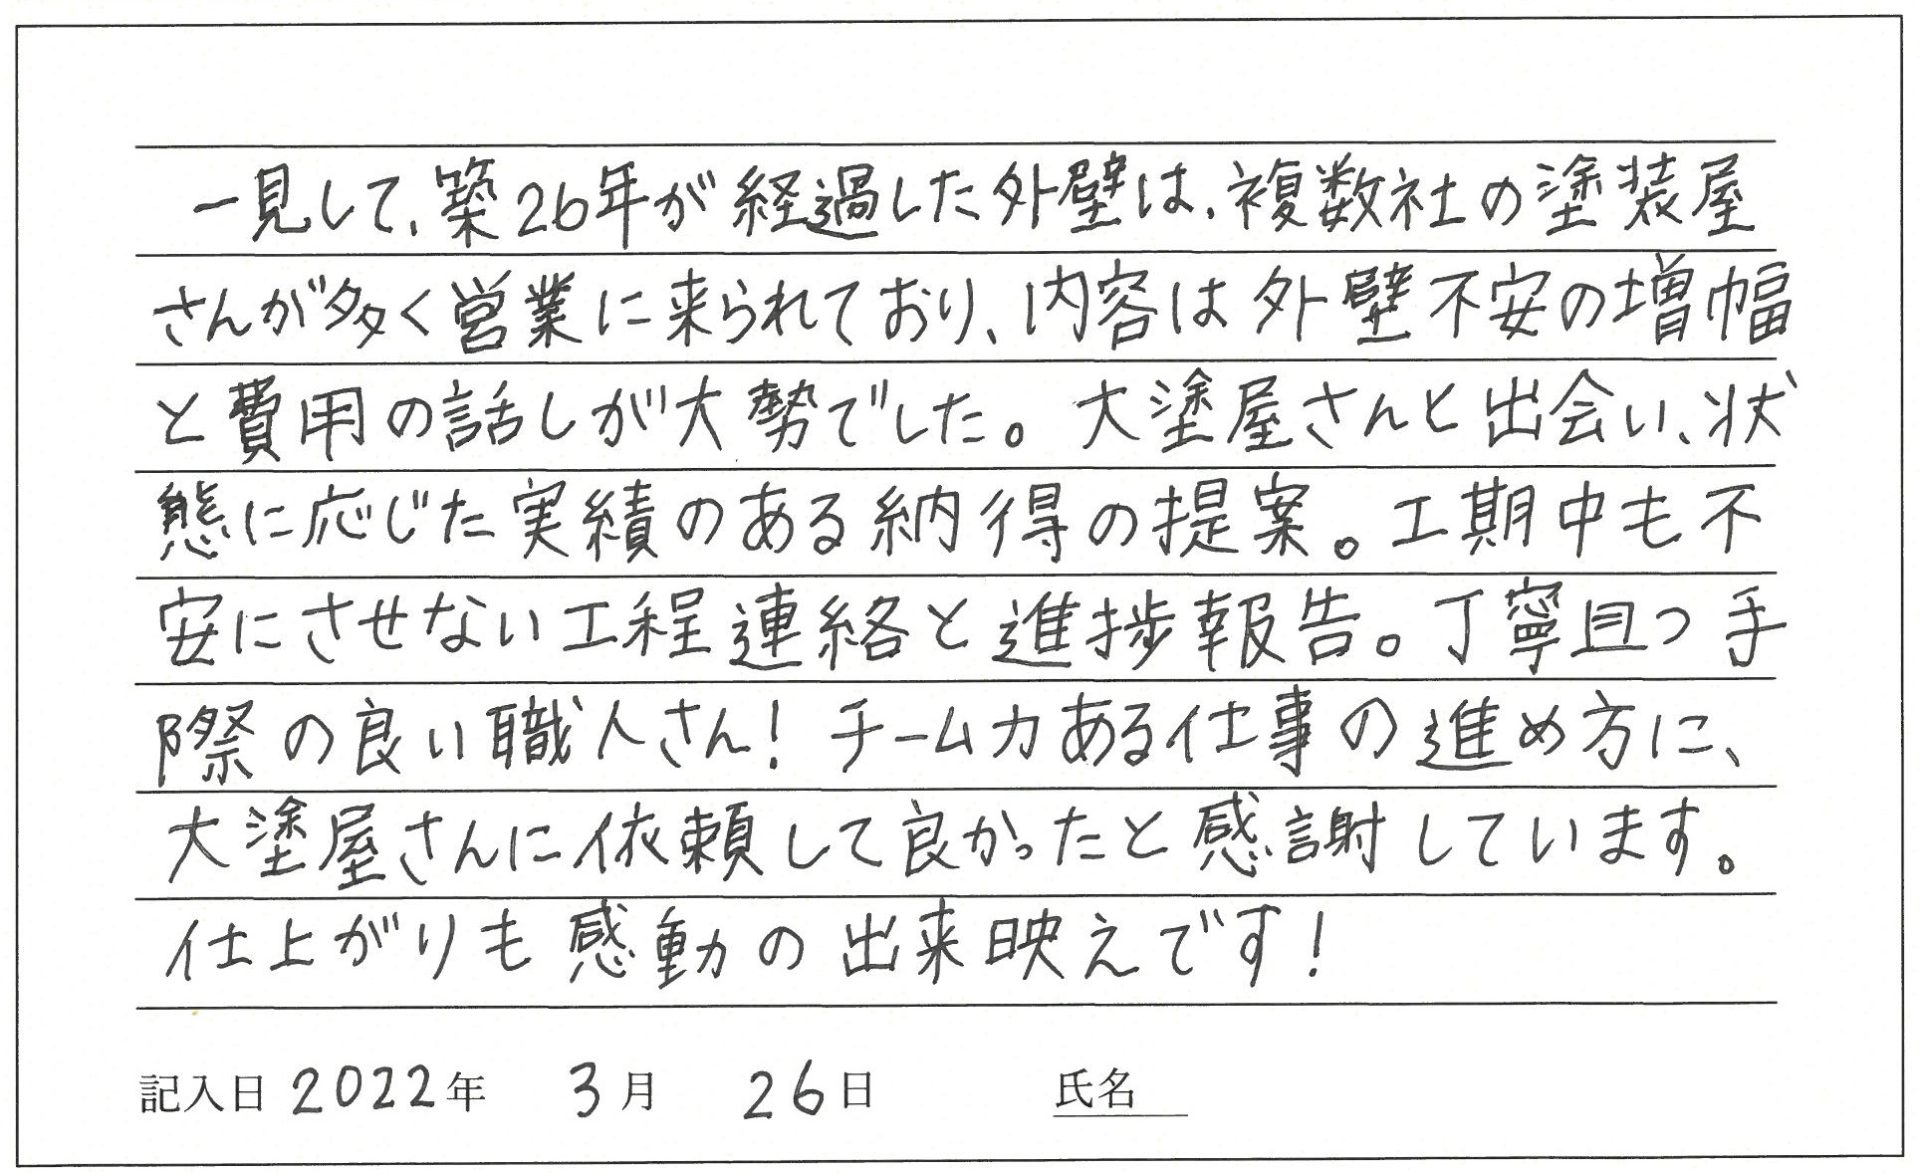 一見して、築26年が経過した外壁は、複数社の塗装屋
さんが多く営業に来られており、内容は外壁不安の増幅
と費用の話しが大勢でした。大塗屋さんと出会い、状
態に応じた実績のある納得の提案。工期中も不
安にさせない工程連絡と進捗報告。丁寧且つ手
際の良い職人さん！チーム力ある仕事の進め方に、
大塗屋さんに依頼して良かったと感謝しています。
仕上がりも感動の出来映えです！
記入日 2022年 3月 26日 氏名